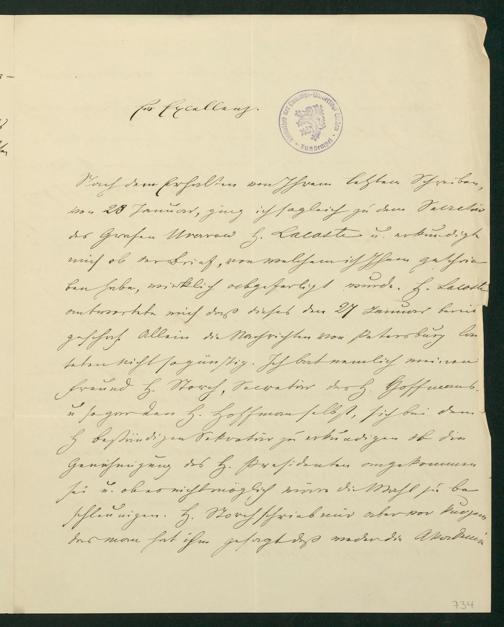 Ew Excellenz.
Nach dem Erhalten von Ihrem letzten Schreiben,
von 28 Januar, ging ich sogleich zu dem Secretär
des Grafen Uvarow H. Lacoste u. erkundigte
mich ob der Brief, von welchem ich Ihnen geschrie
ben habe, wirklich abgefertigt wurde. H. Lacoste
antwortete mich daß dieses den 27 Januar bereits
geschah. Allein die Nachrichten von Petersburg lau
teten nicht so günstig. Ich bat nemlich meinen
Freund H. Storch, Secretär des H. Hoffmans.
u sogar den H. Hoffman selbst, sich bei dem
H beständigen Sekretär zu erkundigen ob die
Genehmigung des H. Presidenten angekommen
sei u. ob es nicht möglich wäre die Wahl zu be
schleunigen. H. Storch schrieb mir aber vor kurzem
das man hat ihm gesagt daß weder die Akademie
734